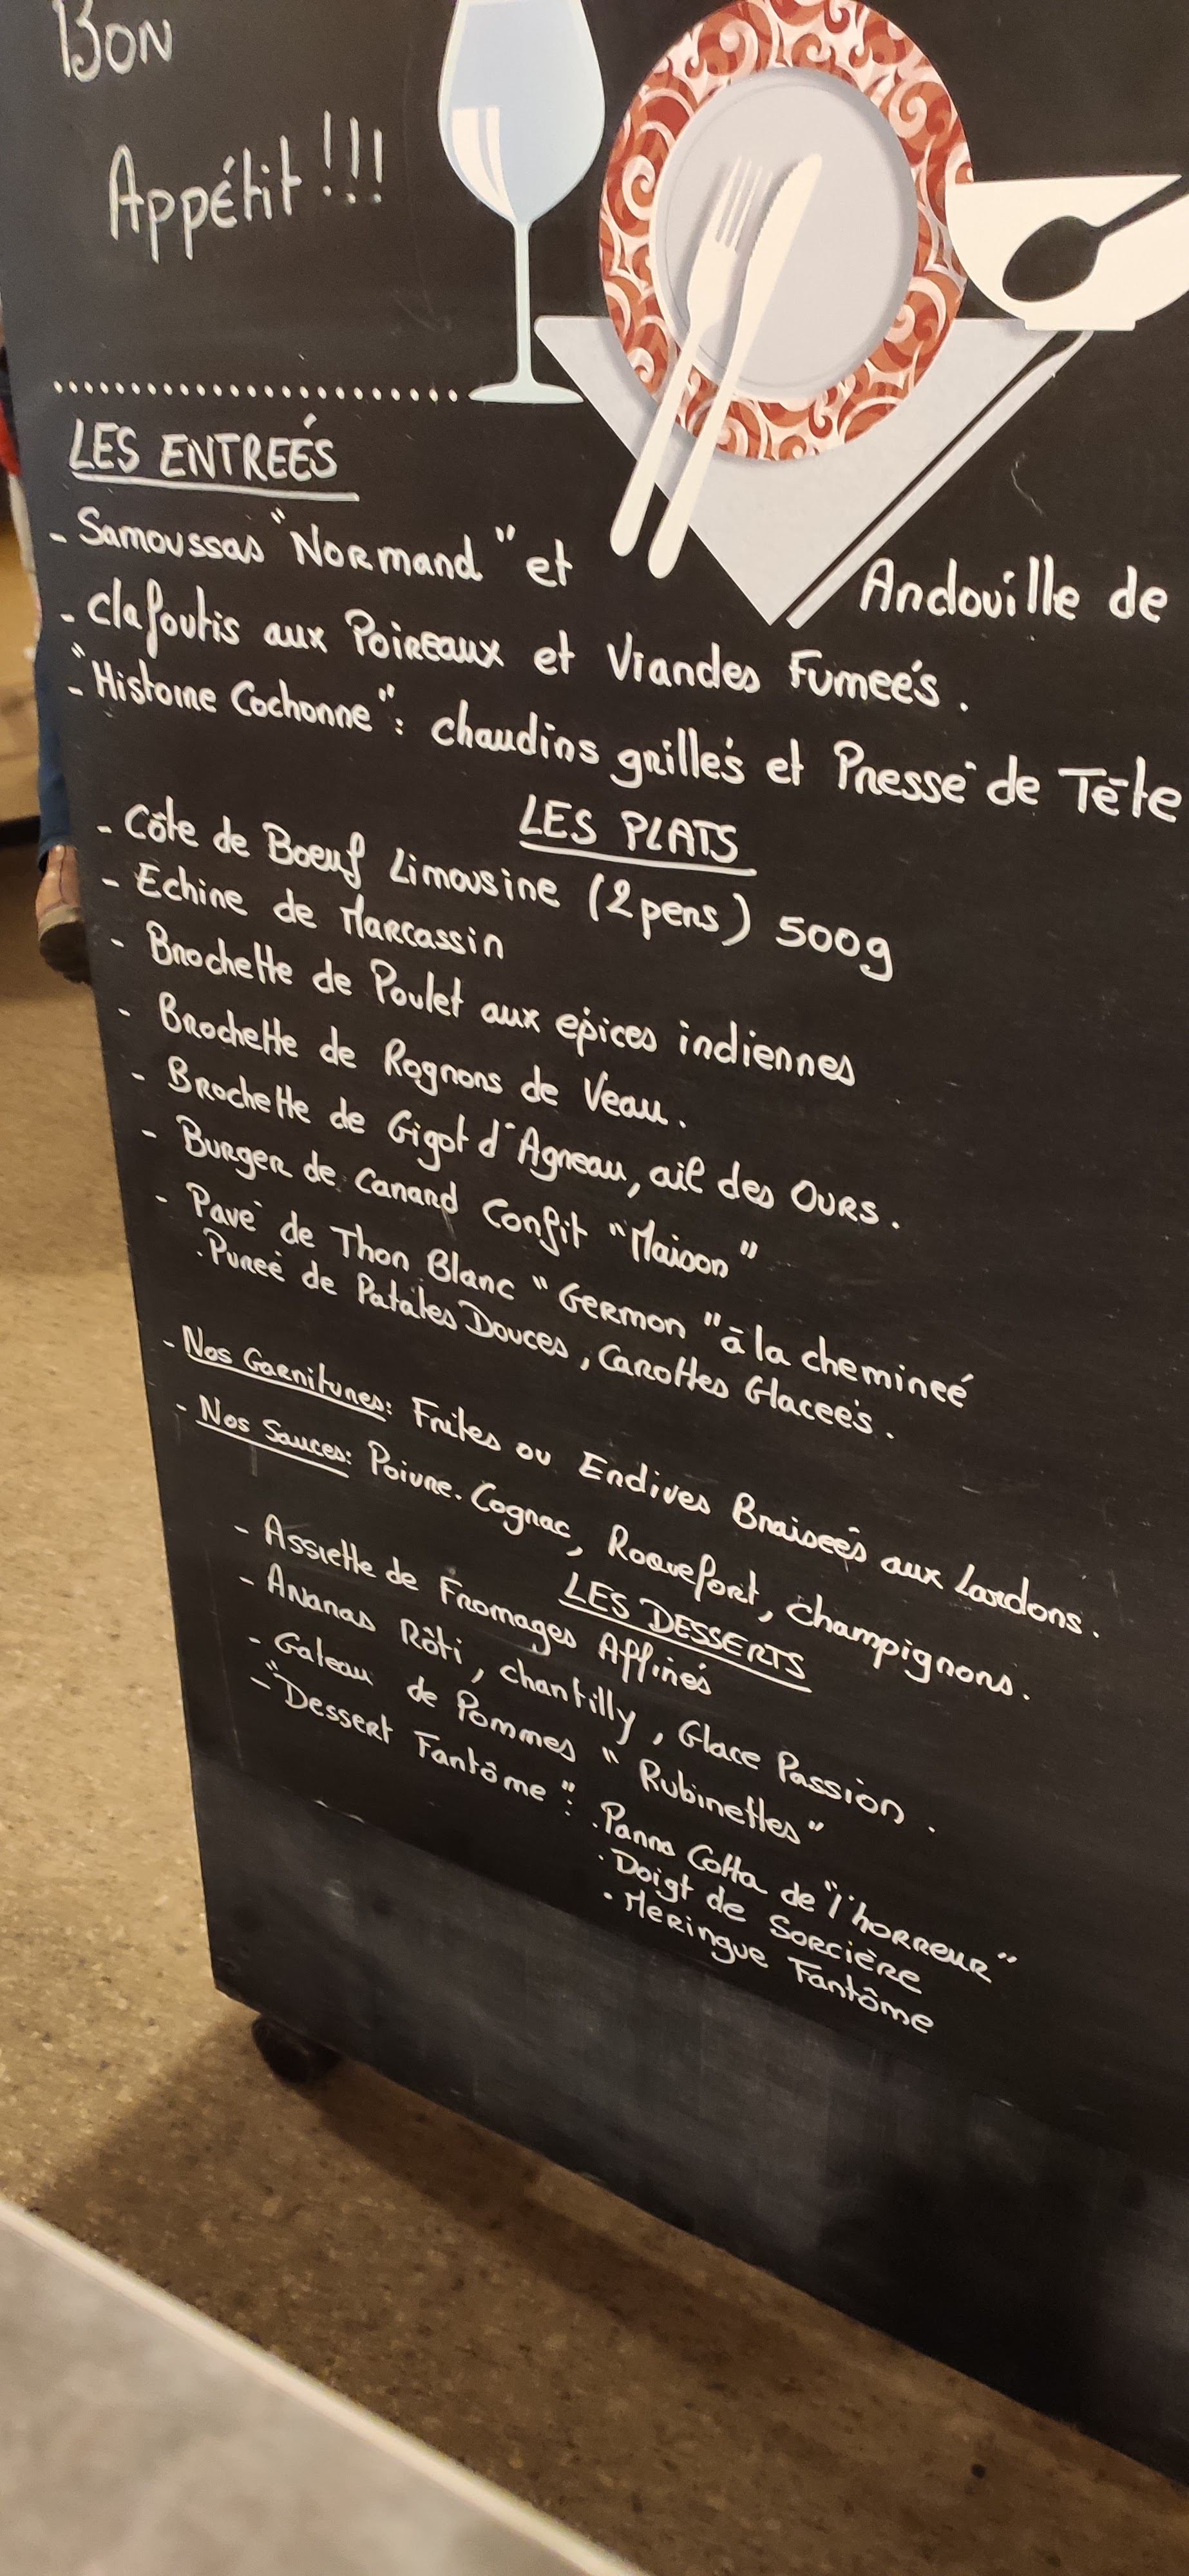 BON
Appétit !!!
LES ENTREÉS
- Samoussas "Normand" et Andouille de
- Clafoutis aux Poireaux et Viandes Fumeés.
- "Histoire Cochonne": chaudins grillés et Pressé de Tête
LES PLATS
- Côte de Boeuf Limousine (2 pers) 500g
- Echine de Marcassin
- Brochette de Poulet aux épices indiennes
- Brochette de Rognons de Veau.
- Brochette de Gigot d'Agneau, ail des OURS.
- Burger de Canard Confit "Maison"
- Pavé de Thon Blanc "Germon" à la chemineé
. Pureé de Patates Douces, Carottes Glaceés.
- Nos Garnitures: Frites ou Endives Braiseés aux Lardons.
- Nos Sauces: Poivre. Cognac, Roquefort, champignons.
LES DESSERTS
- Assiette de Fromages Affinés
- Ananas Rôti, chantilly, Glace Passion.
- Gateau de Pommes "Rubinettes"
- "Dessert Fantôme": . Panna Cotta de "l'horreur"
. Doigt de Sorcière
. Meringue Fantôme